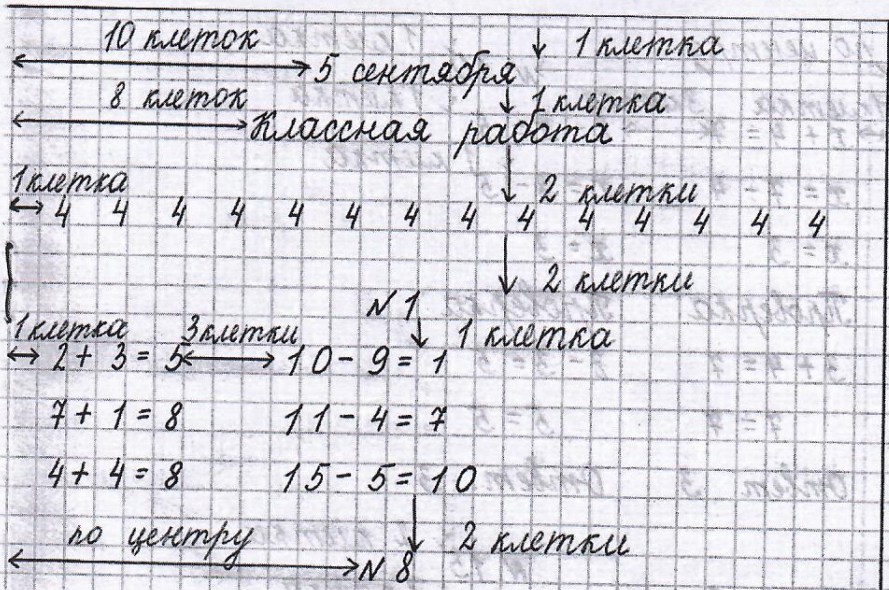 10 клеток 1 клетка
5 сентября
8 клеток 1 клетка
Классная работа
1 клетка 2 клетки
4 4 4 4 4 4 4 4 4 4 4 4 4 4
2 клетки
N 1
1 клетка 3 клетки 1 клетка
2 + 3 = 5 10 - 9 = 1
7 + 1 = 8 11 - 4 = 7
4 + 4 = 8 15 - 5 = 10
по центру 2 клетки
N 8